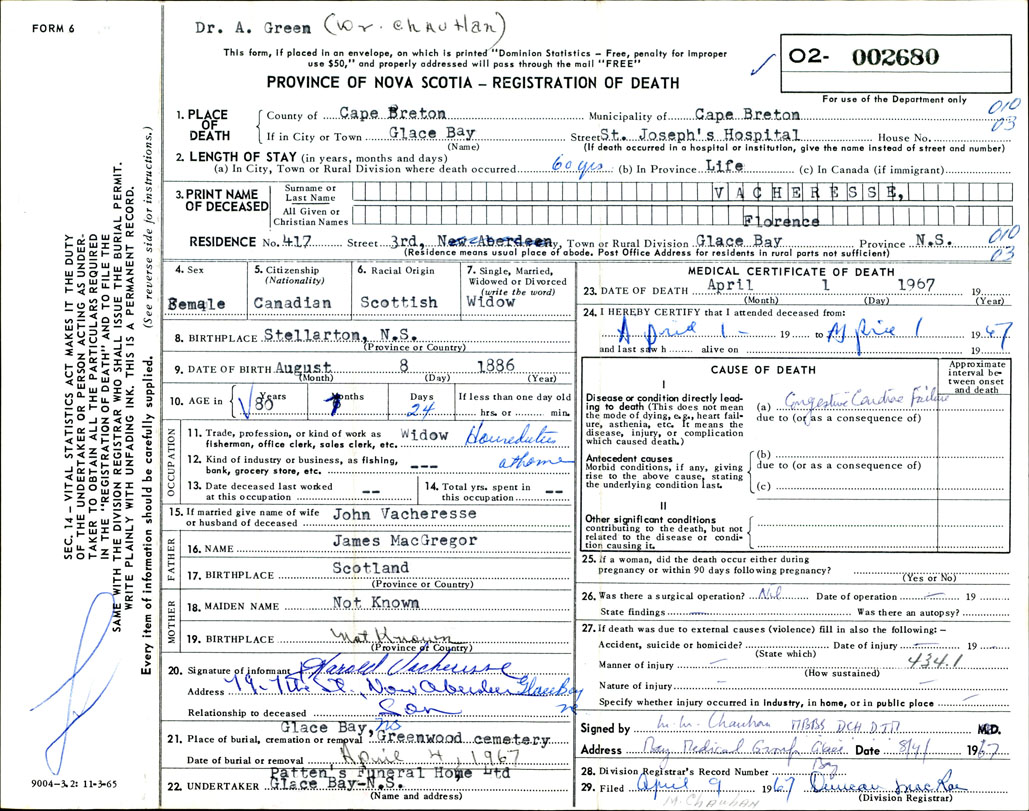 FORM 6
Dr. A. Green (Dr. Chauhan)
This form, if placed in an envelope, on which is printed "Dominion Statistics – Free, penalty for improper
use $50," and properly addressed will pass through the mail "FREE"
PROVINCE OF NOVA SCOTIA – REGISTRATION OF DEATH
O2- 002680
For use of the Department only
010
03
SEC. 14 – VITAL STATISTICS ACT MAKES IT THE DUTY
OF THE UNDERTAKER OR PERSON ACTING AS UNDER-
TAKER TO OBTAIN ALL THE PARTICULARS REQUIRED
IN THE "REGISTRATION OF DEATH" AND TO FILE THE
SAME WITH THE DIVISION REGISTRAR WHO SHALL ISSUE THE BURIAL PERMIT.
WRITE PLAINLY WITH UNFADING INK. THIS IS A PERMANENT RECORD.
Every item of information should be carefully supplied. (See reverse side for instructions.)
1. PLACE OF DEATH
County of Cape Breton Municipality of Cape Breton
If in City or Town Glace Bay Street St. Joseph's Hospital House No.
(Name) (If death occurred in a hospital or institution, give the name instead of street and number)
2. LENGTH OF STAY (in years, months and days)
(a) In City, Town or Rural Division where death occurred 60 yrs (b) In Province Life (c) In Canada (if immigrant)
3. PRINT NAME OF DECEASED
Surname or Last Name VACHERESSE,
All Given or Christian Names Florence
RESIDENCE No. 417 Street 3rd, New Aberdeen, Town or Rural Division Glace Bay Province N.S.
010
03
(Residence means usual place of abode. Post Office Address for residents in rural parts not sufficient)
4. Sex
Female
5. Citizenship
(Nationality)
Canadian
6. Racial Origin
Scottish
7. Single, Married,
Widowed or Divorced
(write the word)
Widow
8. BIRTHPLACE Stellarton, N.S.
(Province or Country)
9. DATE OF BIRTH August 8 1886
(Month) (Day) (Year)
10. AGE in Years 80 Months 7 Days 24 If less than one day old
hrs. or min.
OCCUPATION
11. Trade, profession, or kind of work as
fisherman, office clerk, sales clerk, etc. Widow Houseduties
12. Kind of industry or business, as fishing,
bank, grocery store, etc. --- at home
13. Date deceased last worked
at this occupation --
14. Total yrs. spent in
this occupation --
15. If married give name of wife
or husband of deceased John Vacheresse
FATHER
16. NAME James MacGregor
17. BIRTHPLACE Scotland
(Province or Country)
MOTHER
18. MAIDEN NAME Not Known
19. BIRTHPLACE Not Known
(Province or Country)
20. Signature of informant Harold Vacheresse
Address 7th St., New Aberdeen Glace Bay
NS
Relationship to deceased Son
Glace Bay, NS
21. Place of burial, cremation or removal Greenwood cemetery
Date of burial or removal April 4, 1967
Patten's Funeral Home Ltd
22. UNDERTAKER Glace Bay-N.S.
(Name and address)
9004–3.2: 11-3-65
MEDICAL CERTIFICATE OF DEATH
23. DATE OF DEATH April 1 1967 19
(Month) (Day) (Year)
24. I HEREBY CERTIFY that I attended deceased from:
April 1 – 19 to April 1 1967
and last saw h alive on 19
CAUSE OF DEATH
Approximate
interval be-
tween onset
and death
I
Disease or condition directly lead-
ing to death (This does not mean
the mode of dying, e.g., heart fail-
ure, asthenia, etc. It means the
disease, injury, or complication
which caused death.)
(a) Congestive Cardiac Failure
due to (or as a consequence of)
Antecedent causes
Morbid conditions, if any, giving
rise to the above cause, stating
the underlying condition last.
(b)
due to (or as a consequence of)
(c)
II
Other significant conditions
contributing to the death, but not
related to the disease or condi-
tion causing it.
25. If a woman, did the death occur either during
pregnancy or within 90 days following pregnancy?
(Yes or No)
26. Was there a surgical operation? Nil Date of operation – 19
State findings – Was there an autopsy?
27. If death was due to external causes (violence) fill in also the following: –
Accident, suicide or homicide? Date of injury – 19 –
(State which)
434.1
Manner of injury –
(How sustained)
Nature of injury –
Specify whether injury occurred in industry, in home, or in public place –
Signed by M. M. Chauhan MBBS DCH DTM M.D.
Address Bay Medical Group Glace Bay Date 8/4/ 1967
28. Division Registrar's Record Number
29. Filed April 9 1967 Duncan MacRae
(Division Registrar)
M. CHAUHAN